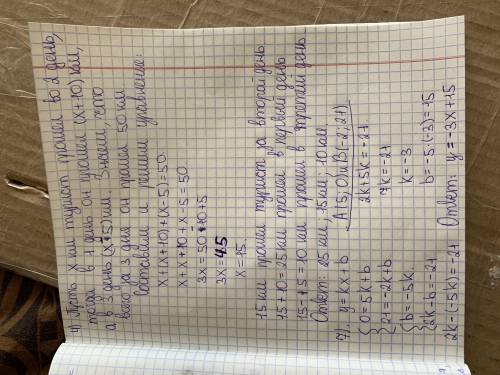 4) Пусть x км турист прошел во 2 день,
тогда в 1 день он прошел (x+10) км,
а в 3 день (x-5) км. Знаем, что
всего за 3 дня он прошел 50 км
Составим и решим уравнение:
x+(x+10)+(x-5)=50.
x+x+10+x-5=50.
3x=50-10+5
3x=45
x=15.
15 км прошел турист за второй день
15+10=25 км прошел в первый день
15-5=10 км прошел в третий день
Ответ: 25 км, 15 км; 10 км
7). y=kx+b A(5;0) и B(-2;21)
{0=5k+b
{21=-2k+b
{b=-5k
{2k-b=-21
2k-(-5k)=-21
2k+5k=-21
7k=-21
k=-3
b=-5·(-3)=15
Ответ: y=-3x+15